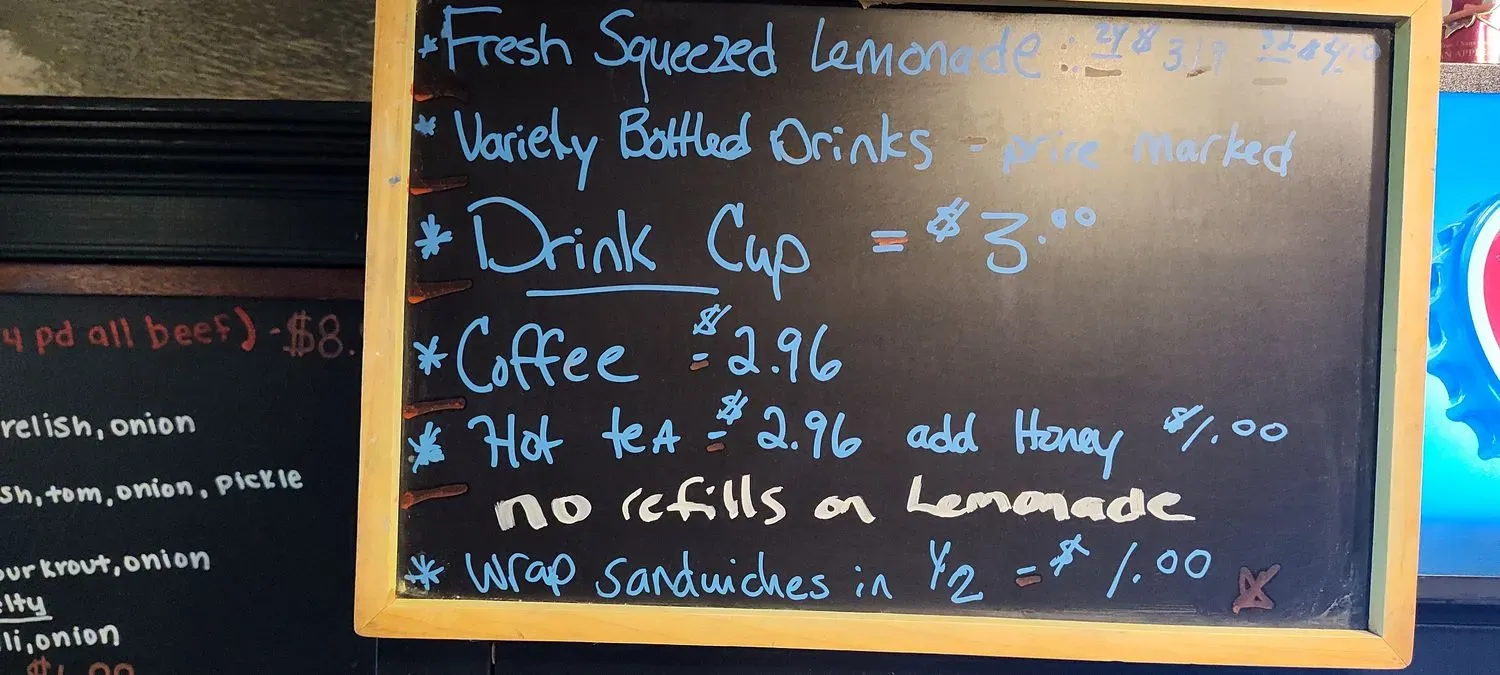 * Fresh Squeezed Lemonade :
* Variety Bottled Drinks - price marked
* Drink Cup = $3.00
* Coffee = $2.96
* Hot teA = $2.96 add Honey $1.00
no refills on Lemonade
* Wrap sandwiches in 1/2 = $1.00
pd all beef) - $8.
relish, onion
sh, tom, onion, pickle
ourkrout, onion
lty
li, onion